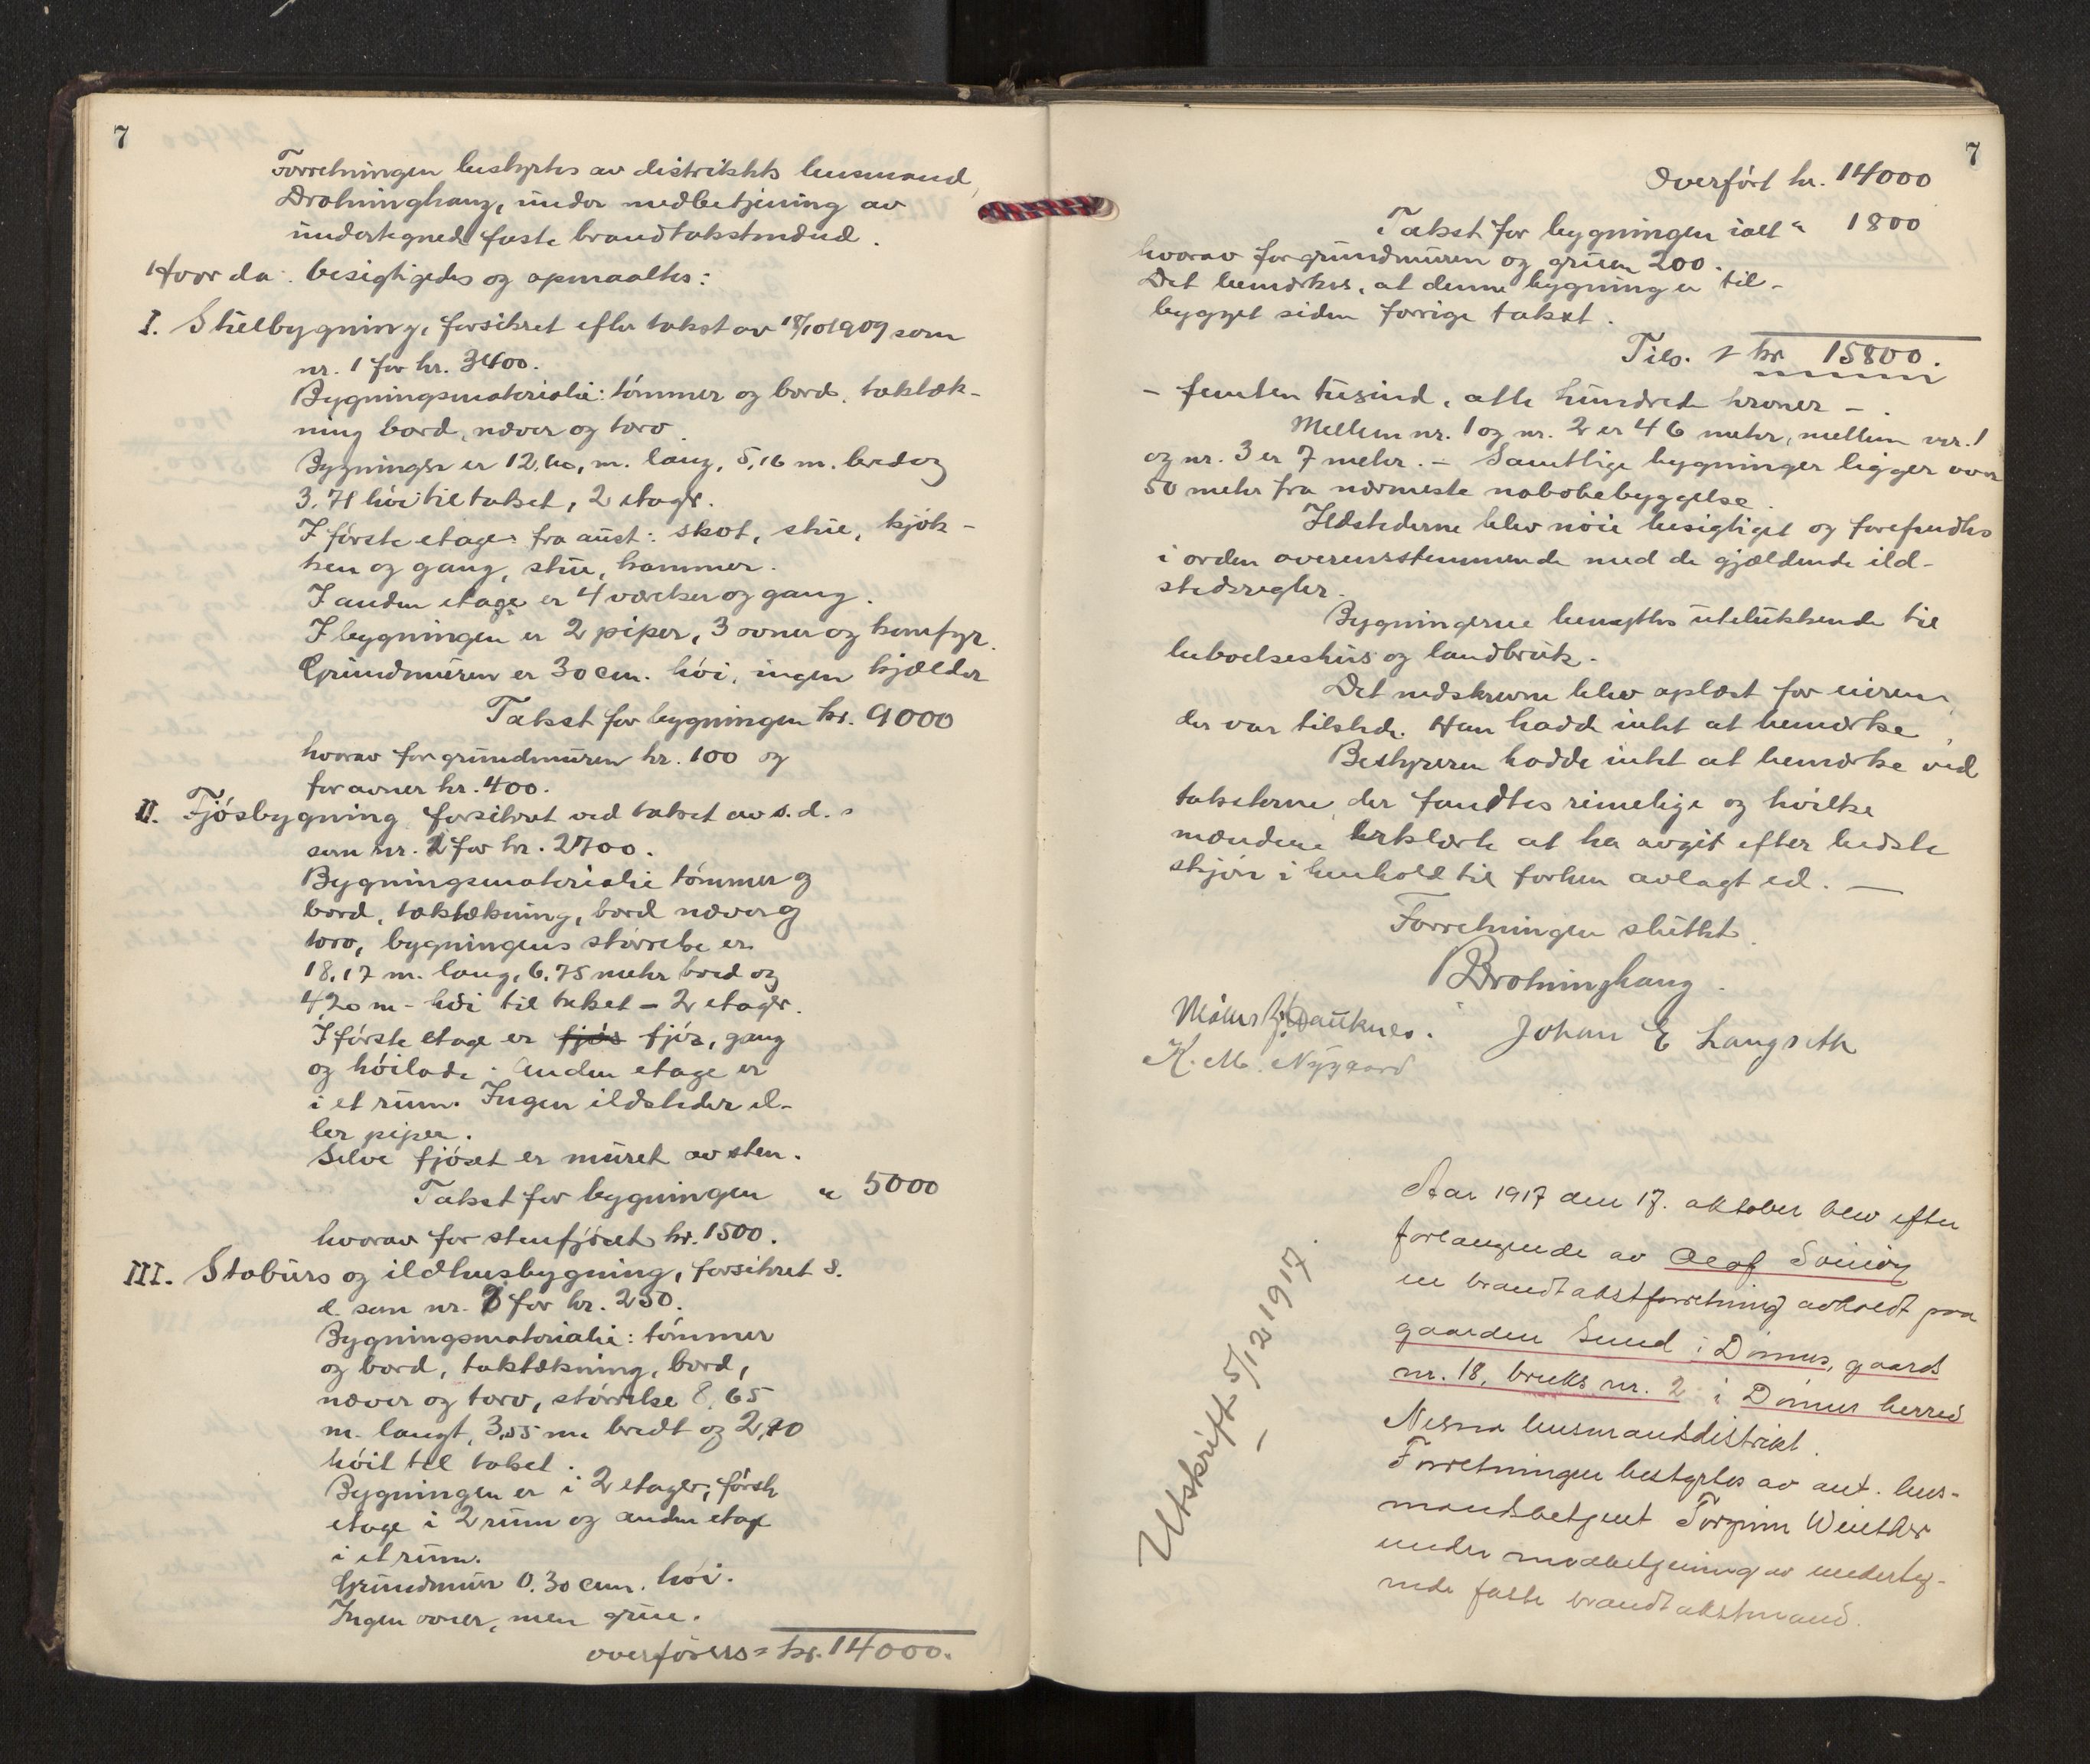 7
Forretningen bestyrtes av distriktets lensmand,
Drotninghaug, under medbetjening av
undertegnede faste brandtakstmænd.
Hvor da: besigtigedes og opmaaltes:
I. Stuebygning, forsikret efter takst av 18/10 1909 som
nr. 1 for kr. 3400.
Bygningsmateriale: tömmer og bord, taktæk-
ning bord, næver og torv.
Bygningen er 12,60, m. lang, 5,16 m. bred og
3.71 höi til taket, 2 etager.
I förste etage: fra aust: skot, stue, kjök-
ken og gang, stue, kammer.
I anden etage er 4 værelser og gang.
I bygningen er 2 piper, 3 ovner og komfyr.
Grundmuren er 30 cm. höi, ingen kjælder
Takst for bygningen kr. 9000
hvorav for grundmuren kr. 100 og
for ovner kr. 400.
II. Fjösbygning forsikret ved takst av s. d.
som nr. 2 for kr. 2700.
Bygningsmateriale tömmer og
bord, taktækning, bord næver og
torv, bygningens störrelse er
18,17 m. lang, 6.75 meter bred og
4,20 m - höi til taket - 2 etager.
I förste etage er fjös fjös, gang
og höilade. Anden etage er
i et rum. Ingen ildsteder el-
ler piper.
Selve fjöset er muret av sten.
Takst for bygningen " 5000
hvorav for stenfjöset kr. 1500.
III. Staburs og ildhusbygning, forsikret s.
d. som nr. 3 for kr. 250.
Bygningsmateriale: tömmer
og bord, taktækning, bord,
næver og torv, störrelse 8,65
m. langt, 3,55 m. bredt og 2,90
höit til taket.
Bygningen er i 2 etager; förste
etage i 2 rum og anden etage
i et rum.
Grundmur 0.30 cm. höi.
Ingen ovner, men grue.
overföres = kr. 14000.
7
Overfört kr. 14000
Takst for bygningen ialt " 1800
hvorav for grundmuren og gruen 200.
Det bemerkes, at denne bygning er til-
bygget siden forrige takst.
Tils. kr 15800.
- femten tusind, atte hundrede kroner -.
Mellem nr. 1 og nr. 2 er 46 meter, mellem nr. 1
og nr. 3 er 7 meter. - Samtlige bygninger ligger over
50 meter fra nærmeste nabobebyggelse.
Ildstederne blev nöie besigtiget og forefandtes
i orden overensstemmende med de gjældende ild-
stedsregler.
Bygningerne benyttes utelukkende til
beboelseshus og landbruk.
Det nedskrevne blev oplæst for eieren
der var tilstede. Han hadde intet at bemerke.
Bestyreren hadde intet at bemerke ved
taksterne, der fandtes rimelige og hvilke
mændene erklærte at ha avgit efter bedste
skjön i henhold til forhen avlagt ed. -
Forretningen sluttet.
Drotninghaug.
Johan E Langseth
K. M. Nygaard
Aar 1917 den 17. oktober blev efter
forlangende av Olaf
en brandtakstforretning avholdt paa
gaarden Sund i Dönnes, gaards
nr. 18, bruks nr. 2 i Dönnes herred
Nesna lensmandsdistrikt.
Forretningen bestyrtes av aut. lens-
mandsbetjent Torginn Winther
under medbetjening av underteg-
nede faste brandtakstmænd.
Utskrift 5/12 1917.